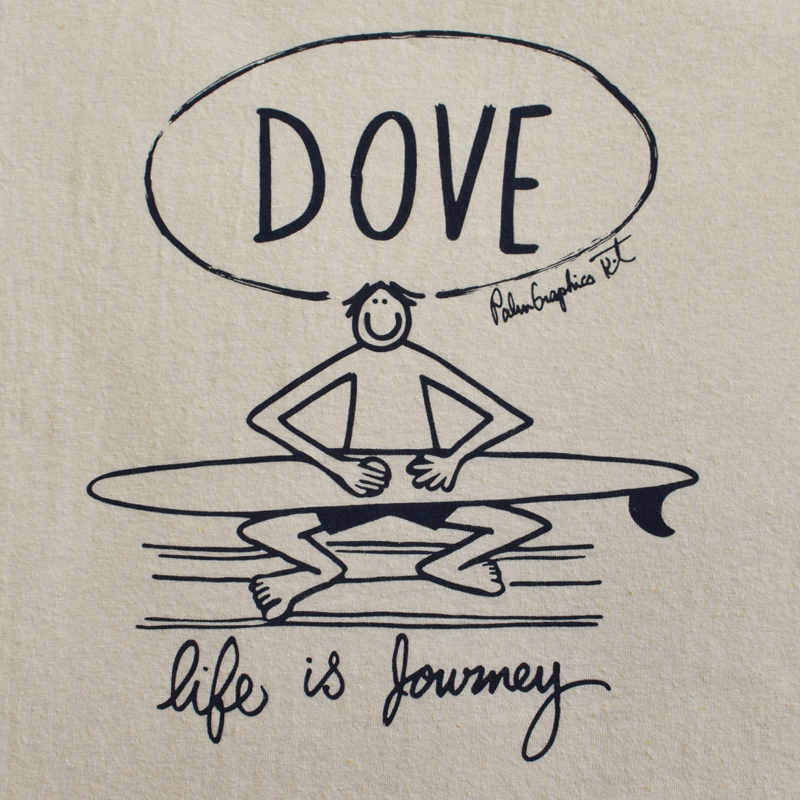 DOVE
PalmGraphics K.t
life is Journey